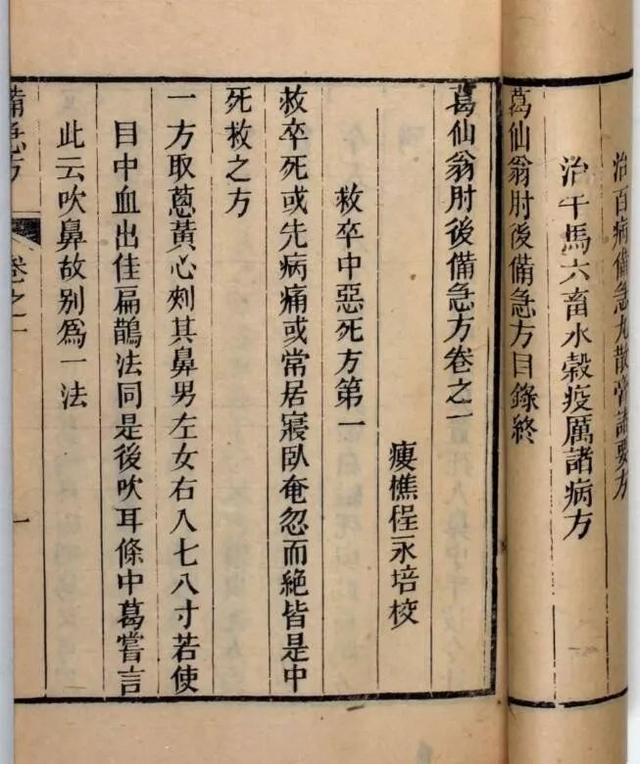 治百病備急丸散膏諸要方
治牛馬六畜水穀疫厲諸病方
葛仙翁肘後備急方目錄終
葛仙翁肘後備急方卷之一
瘦樵程永培校
救卒中惡死方第一
救卒死或先病痛或常居寢臥奄忽而絕皆是中
死救之方
一方取蔥黃心刺其鼻男左女右入七八寸若使
目中血出佳扁鵲法同是後吹耳條中葛嘗言
此云吹鼻故别爲一法
備急方
卷之一
一